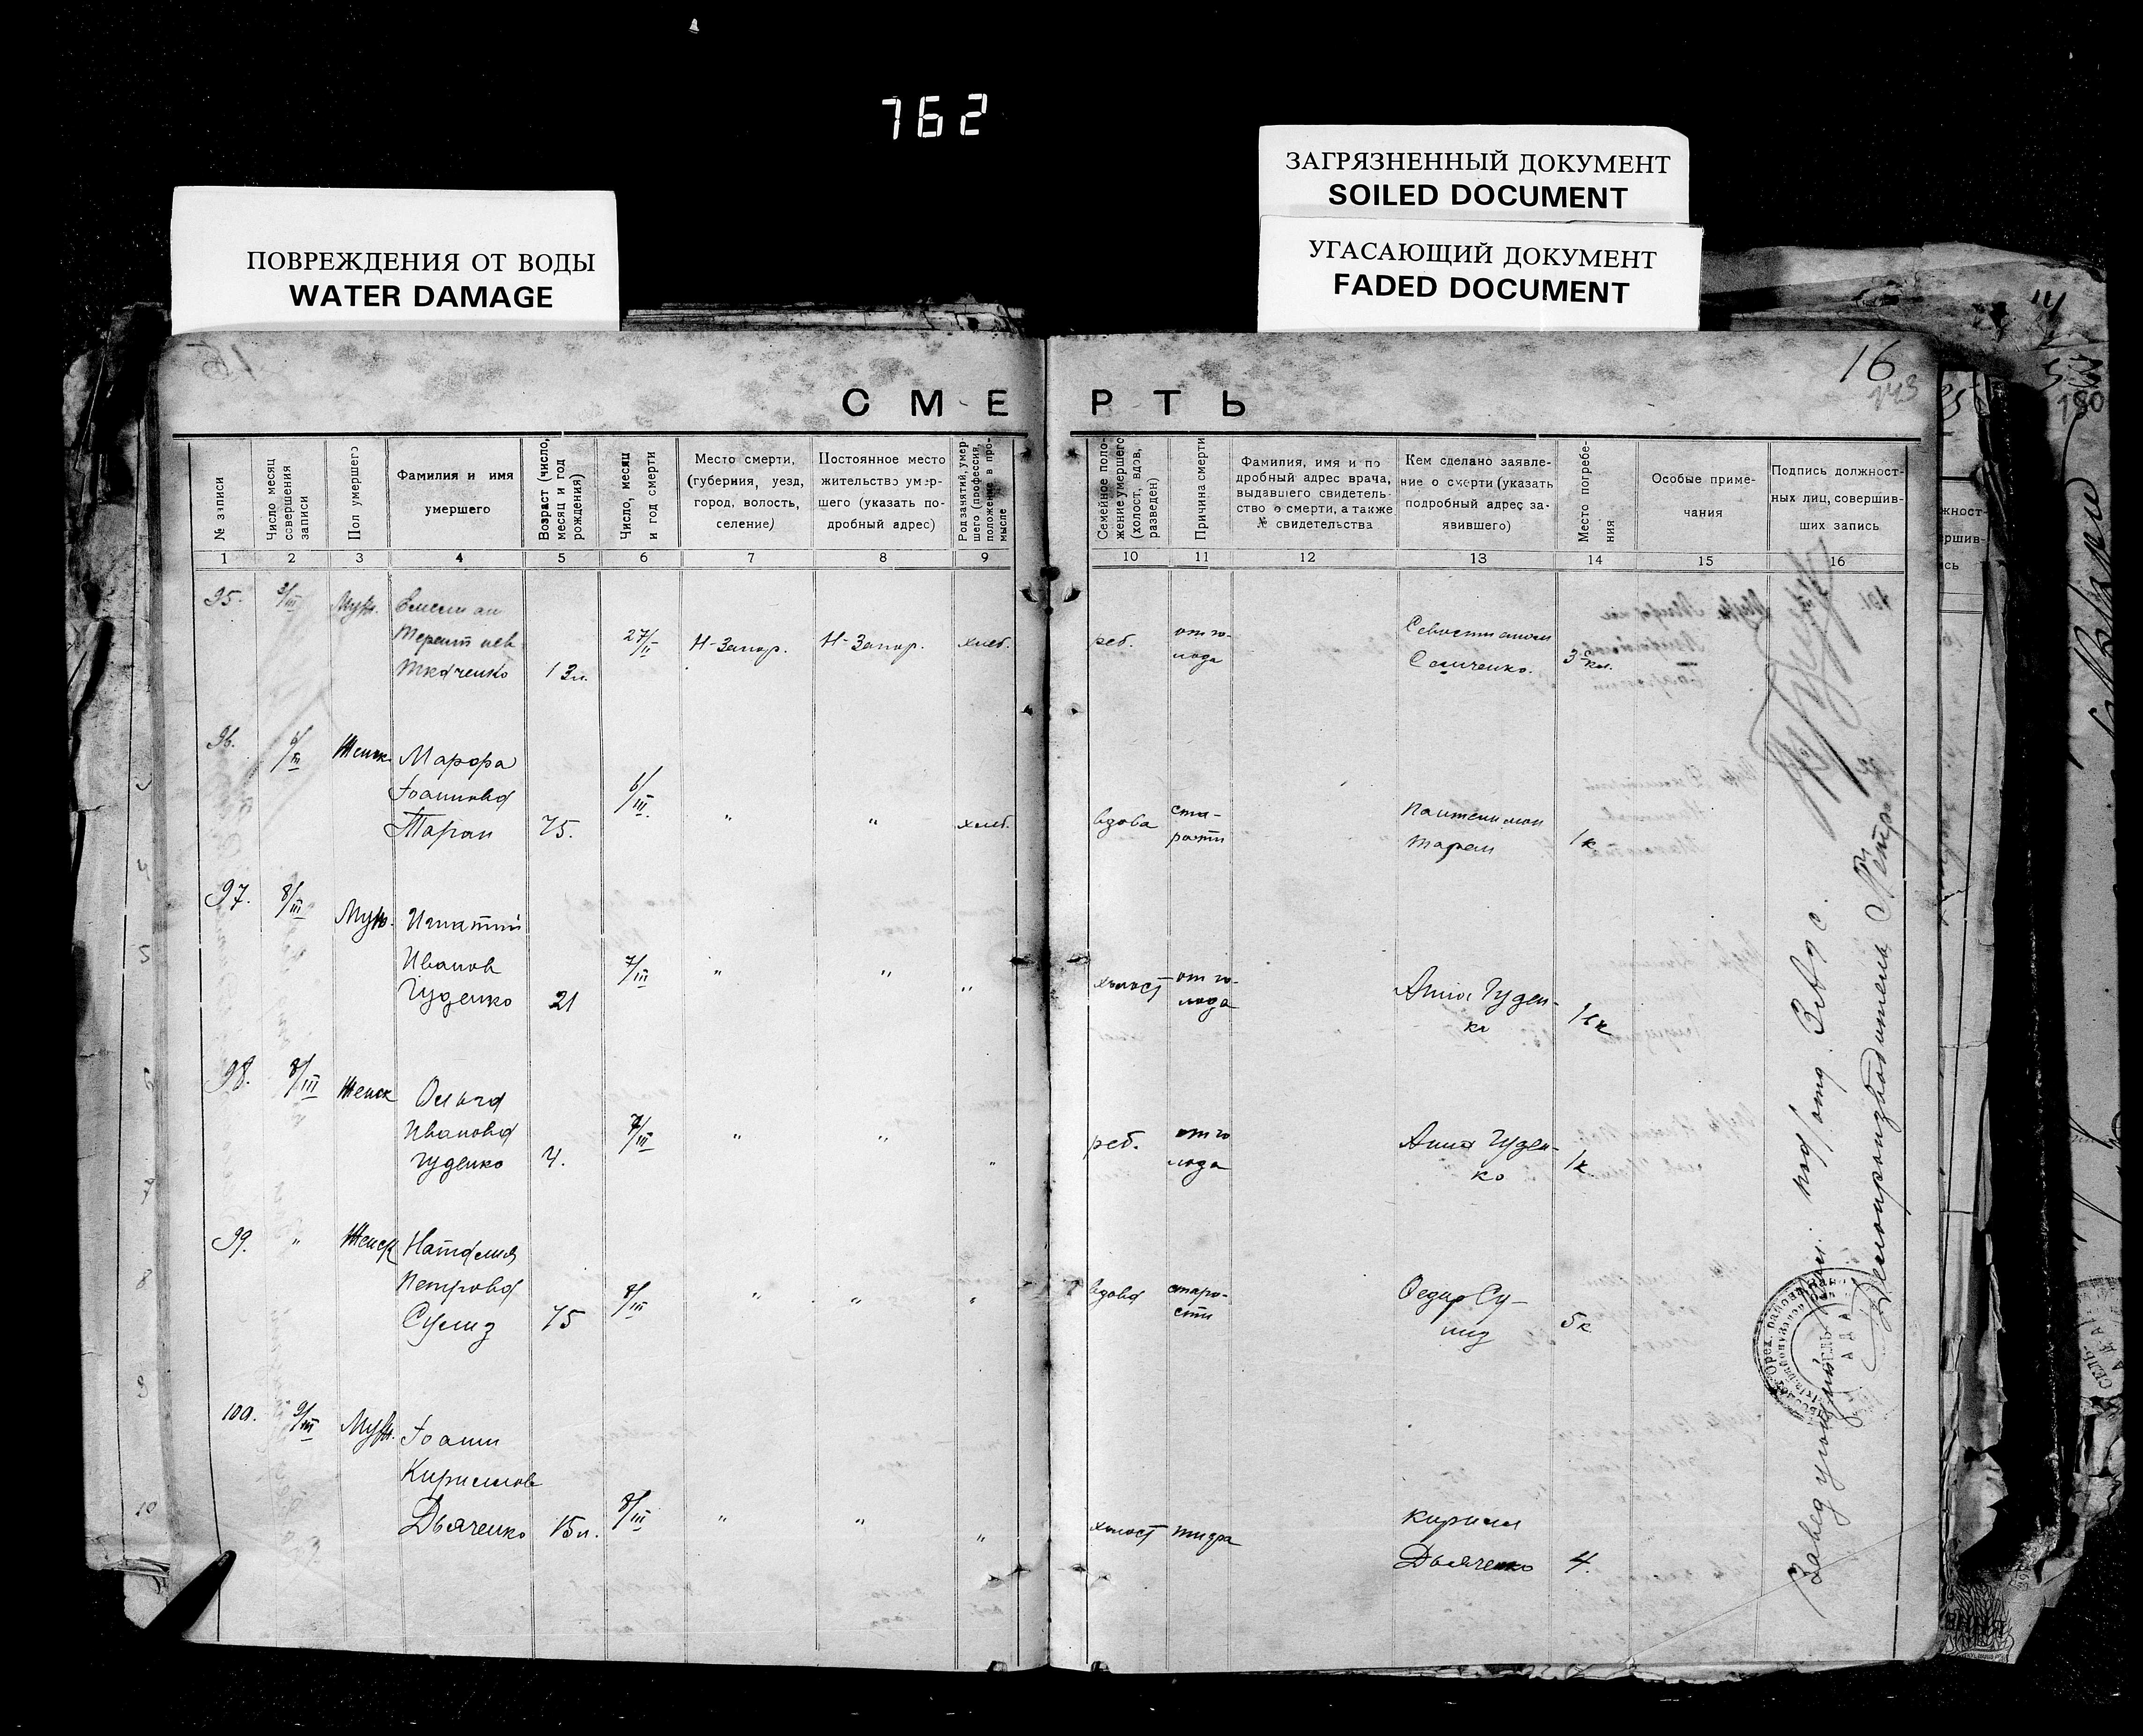 762
ПОВРЕЖДЕНИЯ ОТ ВОДЫ
WATER DAMAGE
ЗАГРЯЗНЕННЫЙ ДОКУМЕНТ
SOILED DOCUMENT
УГАСАЮЩИЙ ДОКУМЕНТ
FADED DOCUMENT
16
143
СМЕРТЬ
№ записи
Число месяц
совершения
записи
Пол умершего
Фамилия и имя
умершего
Возраст (число,
месяц и год
рождения)
Число, месяц
и год смерти
Место смерти,
(губерния, уезд,
город, волость,
селение)
Постоянное место
жительство умер-
шего (указать по-
дробный адрес)
Род занятий, умер-
шего (профессия,
положение в про-
мысле
Семейное поло-
жение умершего
(холост, вдов,
разведен)
Причина смерти
Фамилия, имя и по
дробный адрес врача,
выдавшего свидетель-
ство о смерти, а также
№ свидетельства
Кем сделано заявле-
ние о смерти (указать
подробный адрес за-
явившего)
Место погребе-
ния
Особые приме-
чания
Подпись должност-
ных лиц, совершив-
ших запись
1 2 3 4 5 6 7 8 9 10 11 12 13 14 15 16
95. 3/III Муж. Емельян
Терентиев
Ткаченко 13л. 27/II Н-Запор. Н-Запор. хлеб. реб. от го-
лода
96. 6/III Женск. Марфа
Іоаннова
Таран 75. 6/III. " " хлеб. вдова ста-
рости Пантелимон
Таран 1к
97. 8/III Муж. Игнатий
Иванов
Гуденко 21 7/III " " " холост от го-
лода Анна Гуден-
ко 1к
98. 8/III Женск Ольга
Иванова
Гуденко 4. 7/III " " " реб. от го
лода Анна Гуден-
ко 1к
99. " Женск Наталия
Петрова
Сулиз 75 8/III " " " вдова старо-
сти Федир Су-
лиз 5к
100. 9/III Муж. Іоанн
Кириллов
Дьяченко 15л. 8/III " " " холост тифа Кирилл
Дьяченко 4.
Делопроизводитель